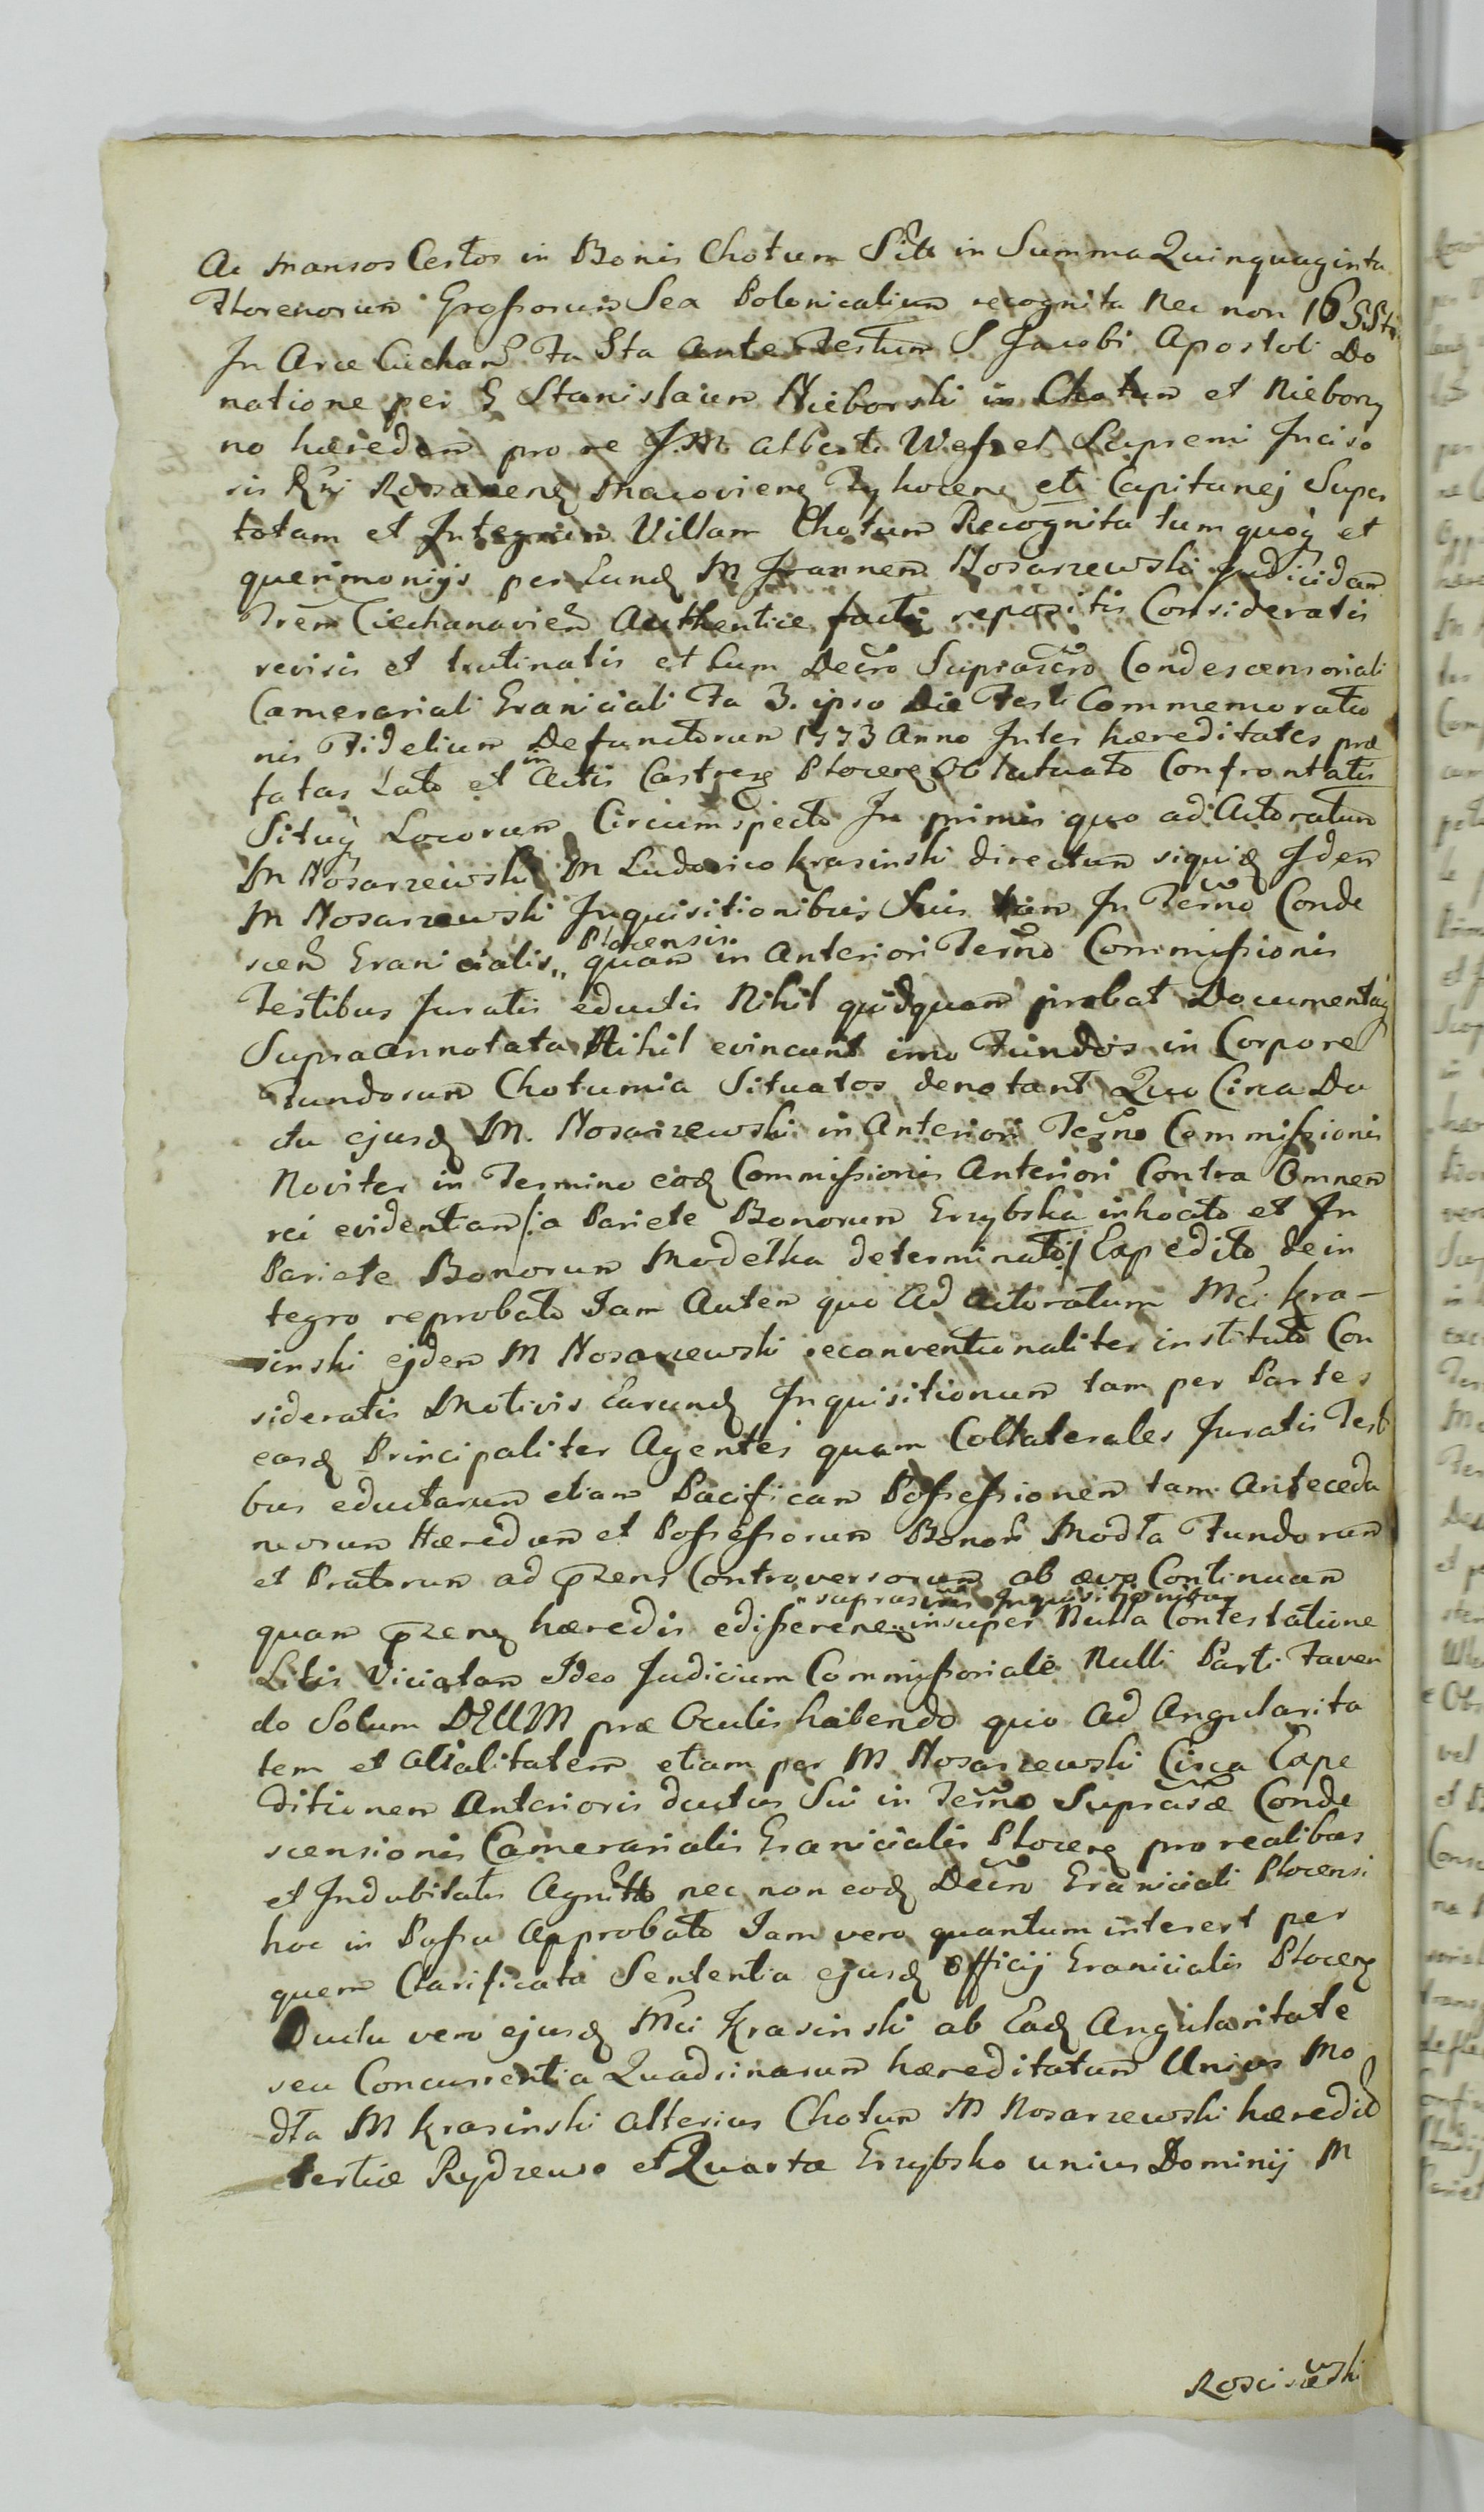 Ac mansos Certos in Bonis Chotum Sitt in Summa Quinquaginta
Florenorum Grossorum Sex Polonicalium recognita Nec non
In Arce Ciechan Fa 5ta ante Festum S Jacobi Apostoli Do
natione per G Stanislaum Nieborski in Chotum et Niebory
no hæredem pro re J.M. Alberti Wessel Supremi Inciso
ris Rni Rozanenę Macovienę Tykocenę etc Capitanej Super
totam et Integram Villam Chotum Recognita tum quoq et
querimonijs per Eundę M Joannem Nosarzewski Judicidam
Trem Ciechanovien Authentice factis repositis Consideratis
revisis et trutinatis et Cum Decro Suprascro Condescensoriali
Camerariali Graniciali Fa 3. ipso Die Festi Commemoratio
nis Fidelium Defunctorum 1773 Anno Inter hæreditates præ
fatas Lato et in Actis Castrenę Plocenę Oblatuato Confrontatis
Situq Locorum Circumspecto In primis quo ad Actoratum
M Nosarzewski M Ludovico Krasinski directum siquidę Idem
M Nosarzewski Inquisitionibus Suis tam In Terno Conde
scen Granicialis Plocensis quam in Anteriori Terno Commissionis
Testibus Juratis eductis Nihil quidquam probat Documentaq
Supra annotata Nihil evincunt imo Fundos in Corpore
Fundorum Chotumia Situatos denotant Quo Circa Du
ctu ejusdę M. Nosarzewski in Anteriori Terno Commissionis
Noviter in Termino eodę Commissionis Anteriori Contra Omnem
rei evidentiam /: a Pariete Bonorum Grzybska inhoato et In
Pariete Bonorum Modelka determinato :/ Expedito de in
tegro reprobato Iam Autem quo Ad Actoratum Mci Kra-
sinski ejdem M Nosarzewski reconventionaliter instituto Con
sideratis Motivis Earundę Inquisitionum tam per Partes
easdę Principaliter Agentes quam Collaterales Juratis Testi
bus eductarum etiam Pacificam Possessionem tam Anteceda
neorum Hæredum et Possessorum Bonor Modła Fundorum
et Pratorum ad præsens Controversorum ab ævo Continuam
suprascris Inquisitionibus
quam præsenę hæredis edisserenę insuper Nulla Contestatione
Litis Viciatam Ideo Judicium Commissoriale Nulli Parti Faven
do Solum DEUM præ Oculis habendo quo Ad Angularita
tem et Acialitatem etiam per M Nosarzewski Circa Expe
ditionem Anterioris ductus Sui in Terno Suprasæ Conde
scensionis Camerarialis Granicialis Plocenę pro realibus
et Indubitatis Agnitto nec non eodę Decro Graniciali Plocensi
hoc in Passu Approbato Iam vero quantum interest per
quem Clarificata Sententia ejusdę Officij Granicialis Plocenę
Ductu vero ejusdę Mci Krasinski ab Eadę Angularitate
seu Concurrentia Quadrinarum hæreditatum Unius Mo
dła M Krasinski Alterius Chotum M Nosarzewski hæredit
tertiæ Rydzewo et Quartæ Grzybsko unius Dominij M
Rosciszewski